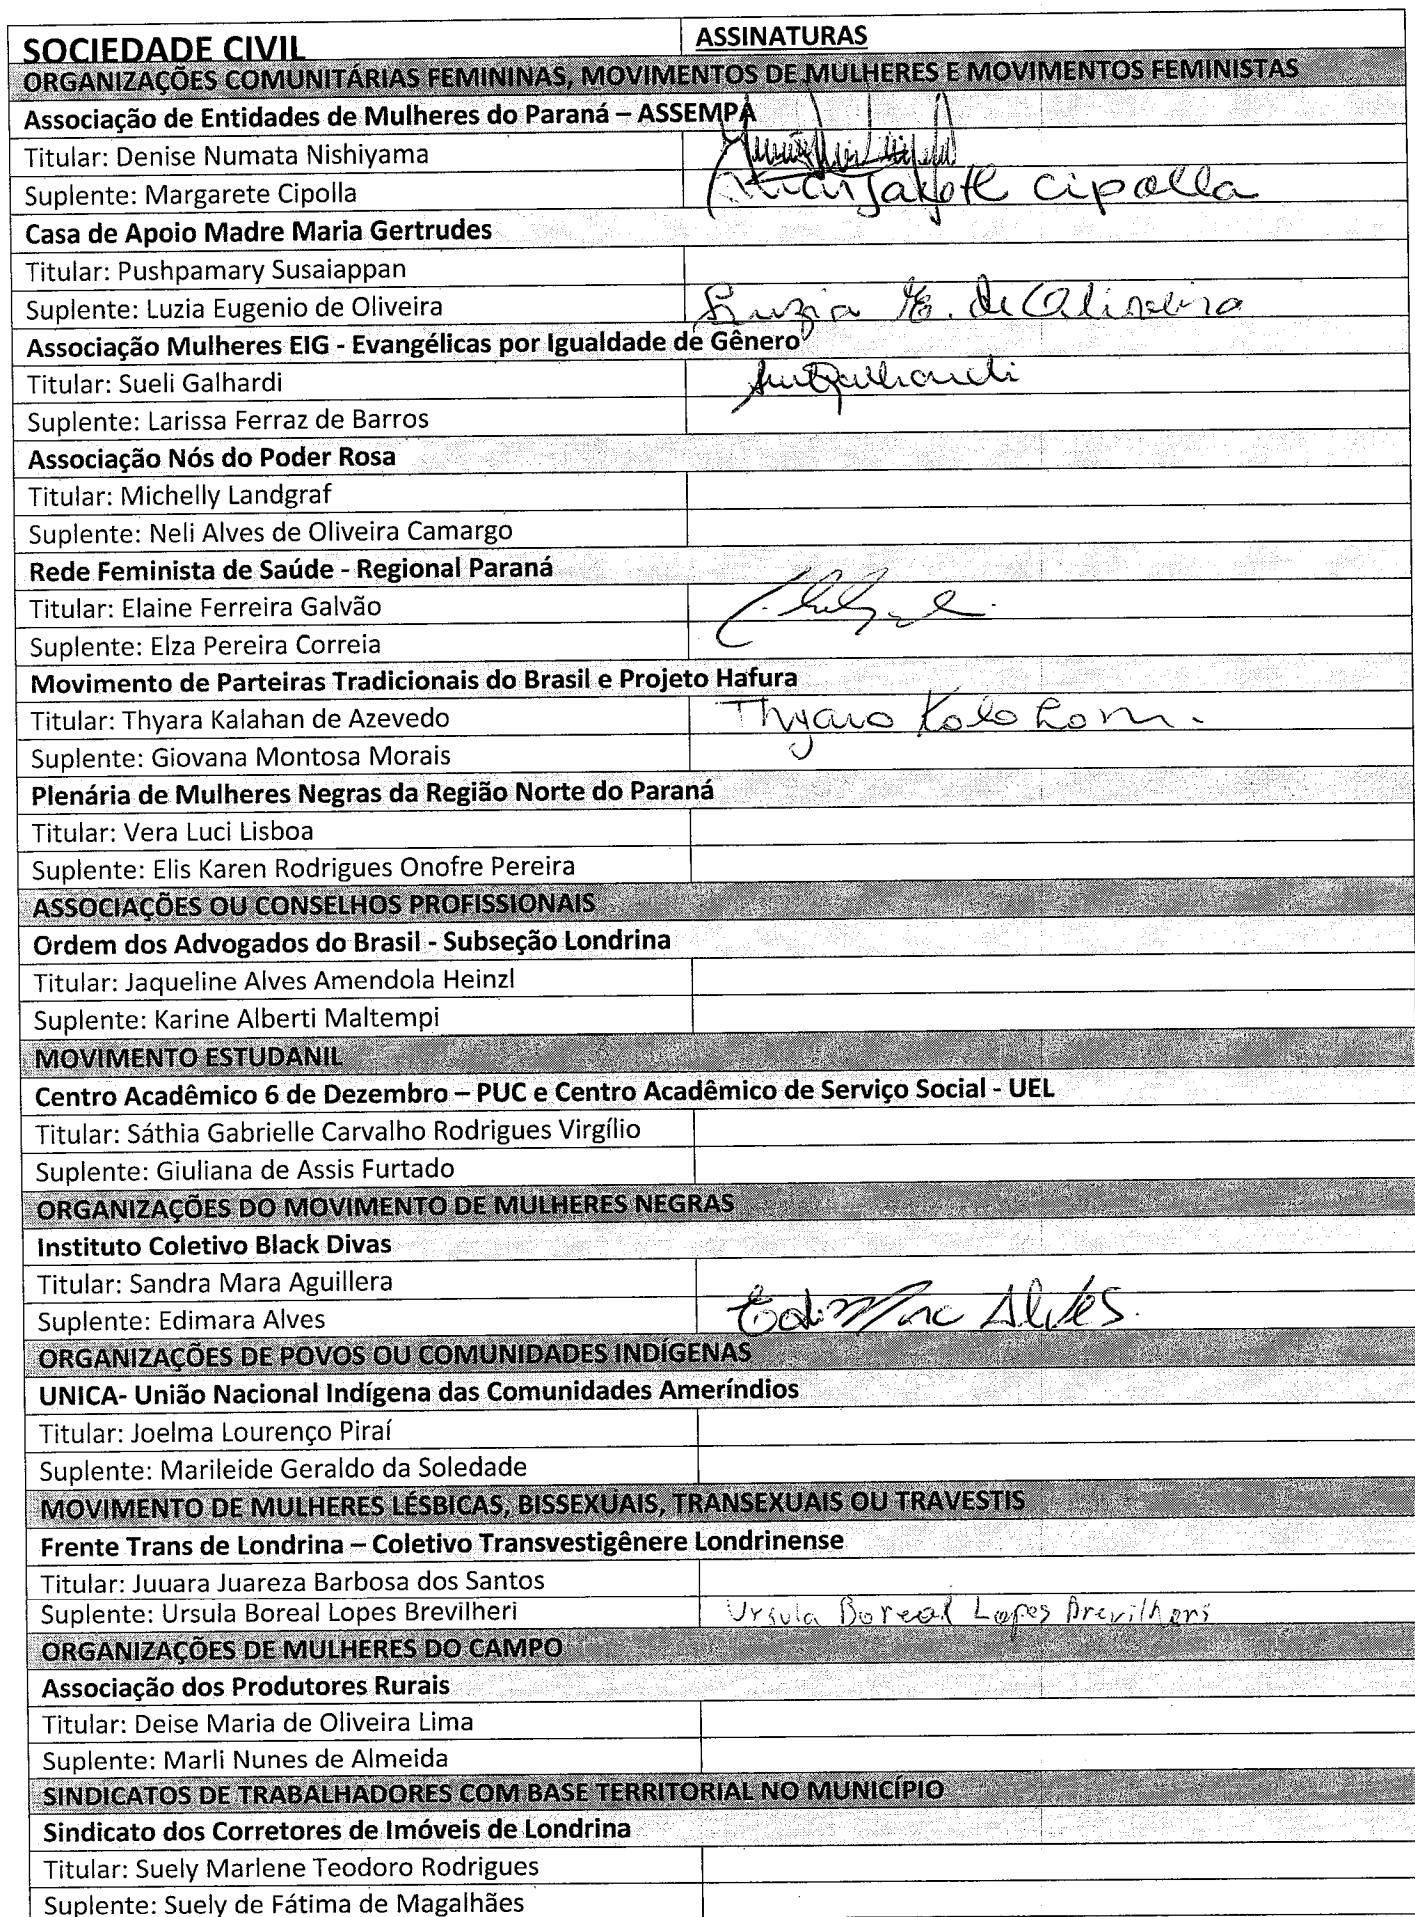 SOCIEDADE CIVIL
ASSINATURAS
ORGANIZAÇÕES COMUNITÁRIAS FEMININAS, MOVIMENTOS DE MULHERES E MOVIMENTOS FEMINISTAS
Associação de Entidades de Mulheres do Paraná – ASSEMPA
Titular: Denise Numata Nishiyama
Suplente: Margarete Cipolla Margarete Cipolla
Casa de Apoio Madre Maria Gertrudes
Titular: Pushpamary Susaiappan
Suplente: Luzia Eugenio de Oliveira Luzia E. de Oliveira
Associação Mulheres EIG - Evangélicas por Igualdade de Gênero
Titular: Sueli Galhardi
Suplente: Larissa Ferraz de Barros
Associação Nós do Poder Rosa
Titular: Michelly Landgraf
Suplente: Neli Alves de Oliveira Camargo
Rede Feminista de Saúde - Regional Paraná
Titular: Elaine Ferreira Galvão
Suplente: Elza Pereira Correia
Movimento de Parteiras Tradicionais do Brasil e Projeto Hafura
Titular: Thyara Kalahan de Azevedo Thyara Kalahan.
Suplente: Giovana Montosa Morais
Plenária de Mulheres Negras da Região Norte do Paraná
Titular: Vera Luci Lisboa
Suplente: Elis Karen Rodrigues Onofre Pereira
ASSOCIAÇÕES OU CONSELHOS PROFISSIONAIS
Ordem dos Advogados do Brasil - Subseção Londrina
Titular: Jaqueline Alves Amendola Heinzl
Suplente: Karine Alberti Maltempi
MOVIMENTO ESTUDANIL
Centro Acadêmico 6 de Dezembro – PUC e Centro Acadêmico de Serviço Social - UEL
Titular: Sáthia Gabrielle Carvalho Rodrigues Virgílio
Suplente: Giuliana de Assis Furtado
ORGANIZAÇÕES DO MOVIMENTO DE MULHERES NEGRAS
Instituto Coletivo Black Divas
Titular: Sandra Mara Aguillera
Suplente: Edimara Alves Edimara Alves.
ORGANIZAÇÕES DE POVOS OU COMUNIDADES INDÍGENAS
UNICA- União Nacional Indígena das Comunidades Ameríndios
Titular: Joelma Lourenço Piraí
Suplente: Marileide Geraldo da Soledade
MOVIMENTO DE MULHERES LÉSBICAS, BISSEXUAIS, TRANSEXUAIS OU TRAVESTIS
Frente Trans de Londrina – Coletivo Transvestigênere Londrinense
Titular: Juuara Juareza Barbosa dos Santos
Suplente: Ursula Boreal Lopes Brevilheri Ursula Boreal Lopes Brevilheri
ORGANIZAÇÕES DE MULHERES DO CAMPO
Associação dos Produtores Rurais
Titular: Deise Maria de Oliveira Lima
Suplente: Marli Nunes de Almeida
SINDICATOS DE TRABALHADORES COM BASE TERRITORIAL NO MUNICÍPIO
Sindicato dos Corretores de Imóveis de Londrina
Titular: Suely Marlene Teodoro Rodrigues
Suplente: Suely de Fátima de Magalhães